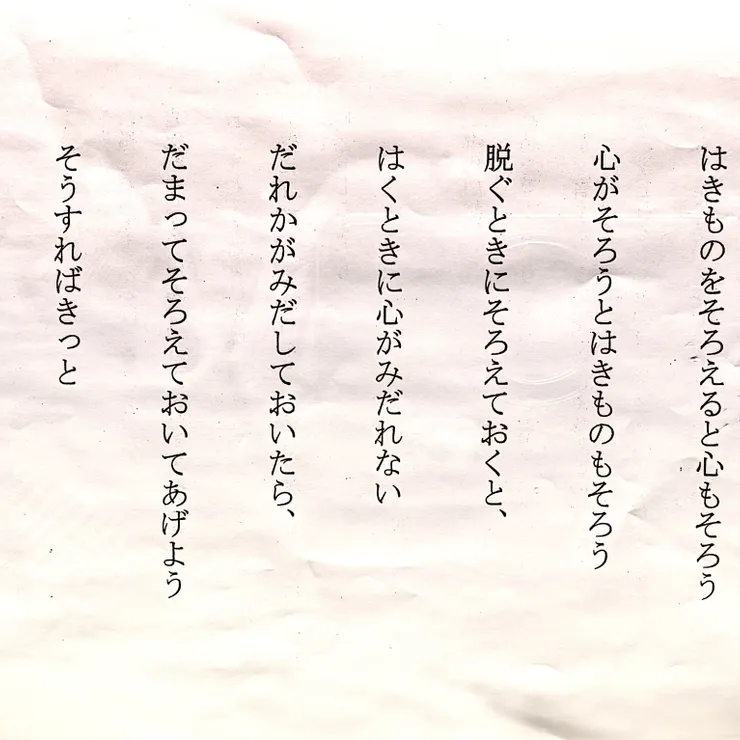 はきものをそろえると心もそろう
心がそろうとはきものもそろう
脱ぐときにそろえておくと、
はくときに心がみだれない
だれかがみだしておいたら、
だまってそろえておいてあげよう
そうすればきっと